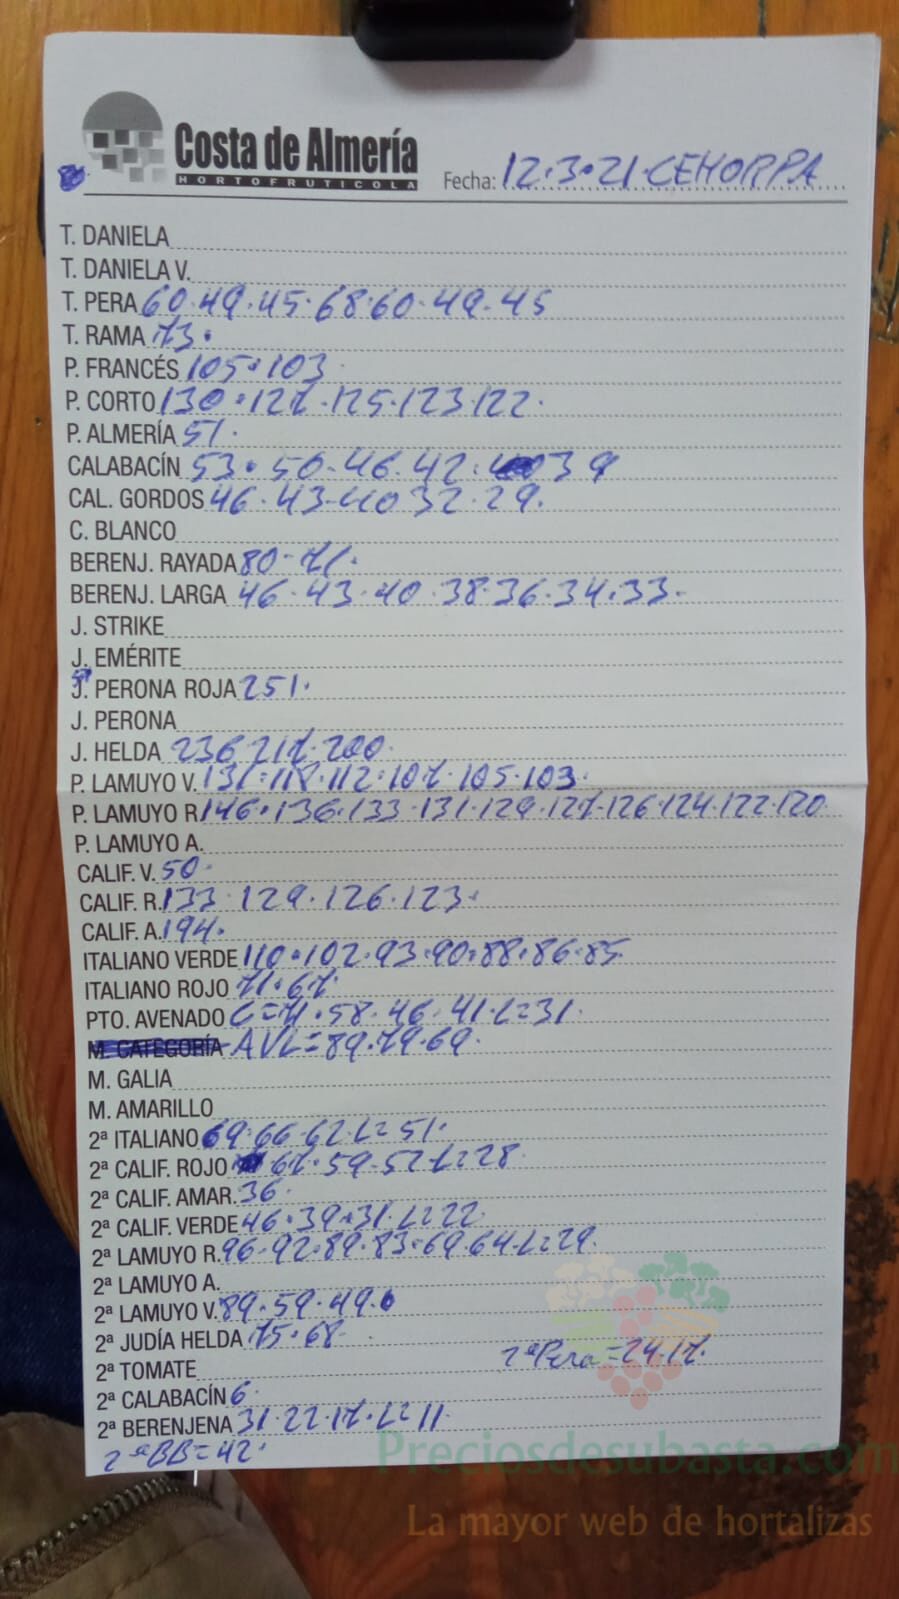 Costa de Almería
HORTOFRUTICOLA
Fecha: 12.3.21.CEHORPA
T. DANIELA
T. DANIELA V.
T. PERA 60.49.45.68.60.49.45
T. RAMA 73.
P. FRANCÉS 105.103
P. CORTO 130.127.125.123.122.
P. ALMERÍA 51.
CALABACÍN 53.50.46.42. 39
CAL. GORDOS 46.43.40 32.29.
C. BLANCO
BERENJ. RAYADA 80-71.
BERENJ. LARGA 46.43.40.38.36.34.33.
J. STRIKE
J. EMÉRITE
J. PERONA ROJA 251.
J. PERONA
J. HELDA 236 217.200.
P. LAMUYO V. 131.118.112.107.105.103.
P. LAMUYO R. 146.136.133.131.129.127.126.124.122.120
P. LAMUYO A.
CALIF. V. 50.
CALIF. R. 133.129.126.123.
CALIF. A. 194.
ITALIANO VERDE 110.102.93.90.88.86.85
ITALIANO ROJO 71.67.
PTO. AVENADO C=71.58.46.41.L=31.
M. CATEGORÍA AVL=89.79.69.
M. GALIA
M. AMARILLO
2ª ITALIANO 69.66.62.L=51.
2ª CALIF. ROJO 67.59.52.L=28.
2ª CALIF. AMAR. 36.
2ª CALIF. VERDE 46.39.31.L=22
2ª LAMUYO R. 96-92.89.83.69.64.L=29.
2ª LAMUYO A.
2ª LAMUYO V. 89.59.49.
2ª JUDÍA HELDA 75.68.
2ª Pera=24.17.
2ª TOMATE
2ª CALABACÍN 6.
2ª BERENJENA 31.22.17.L=11.
2ªBB=42.
Preciosdesubasta.com
La mayor web de hortalizas